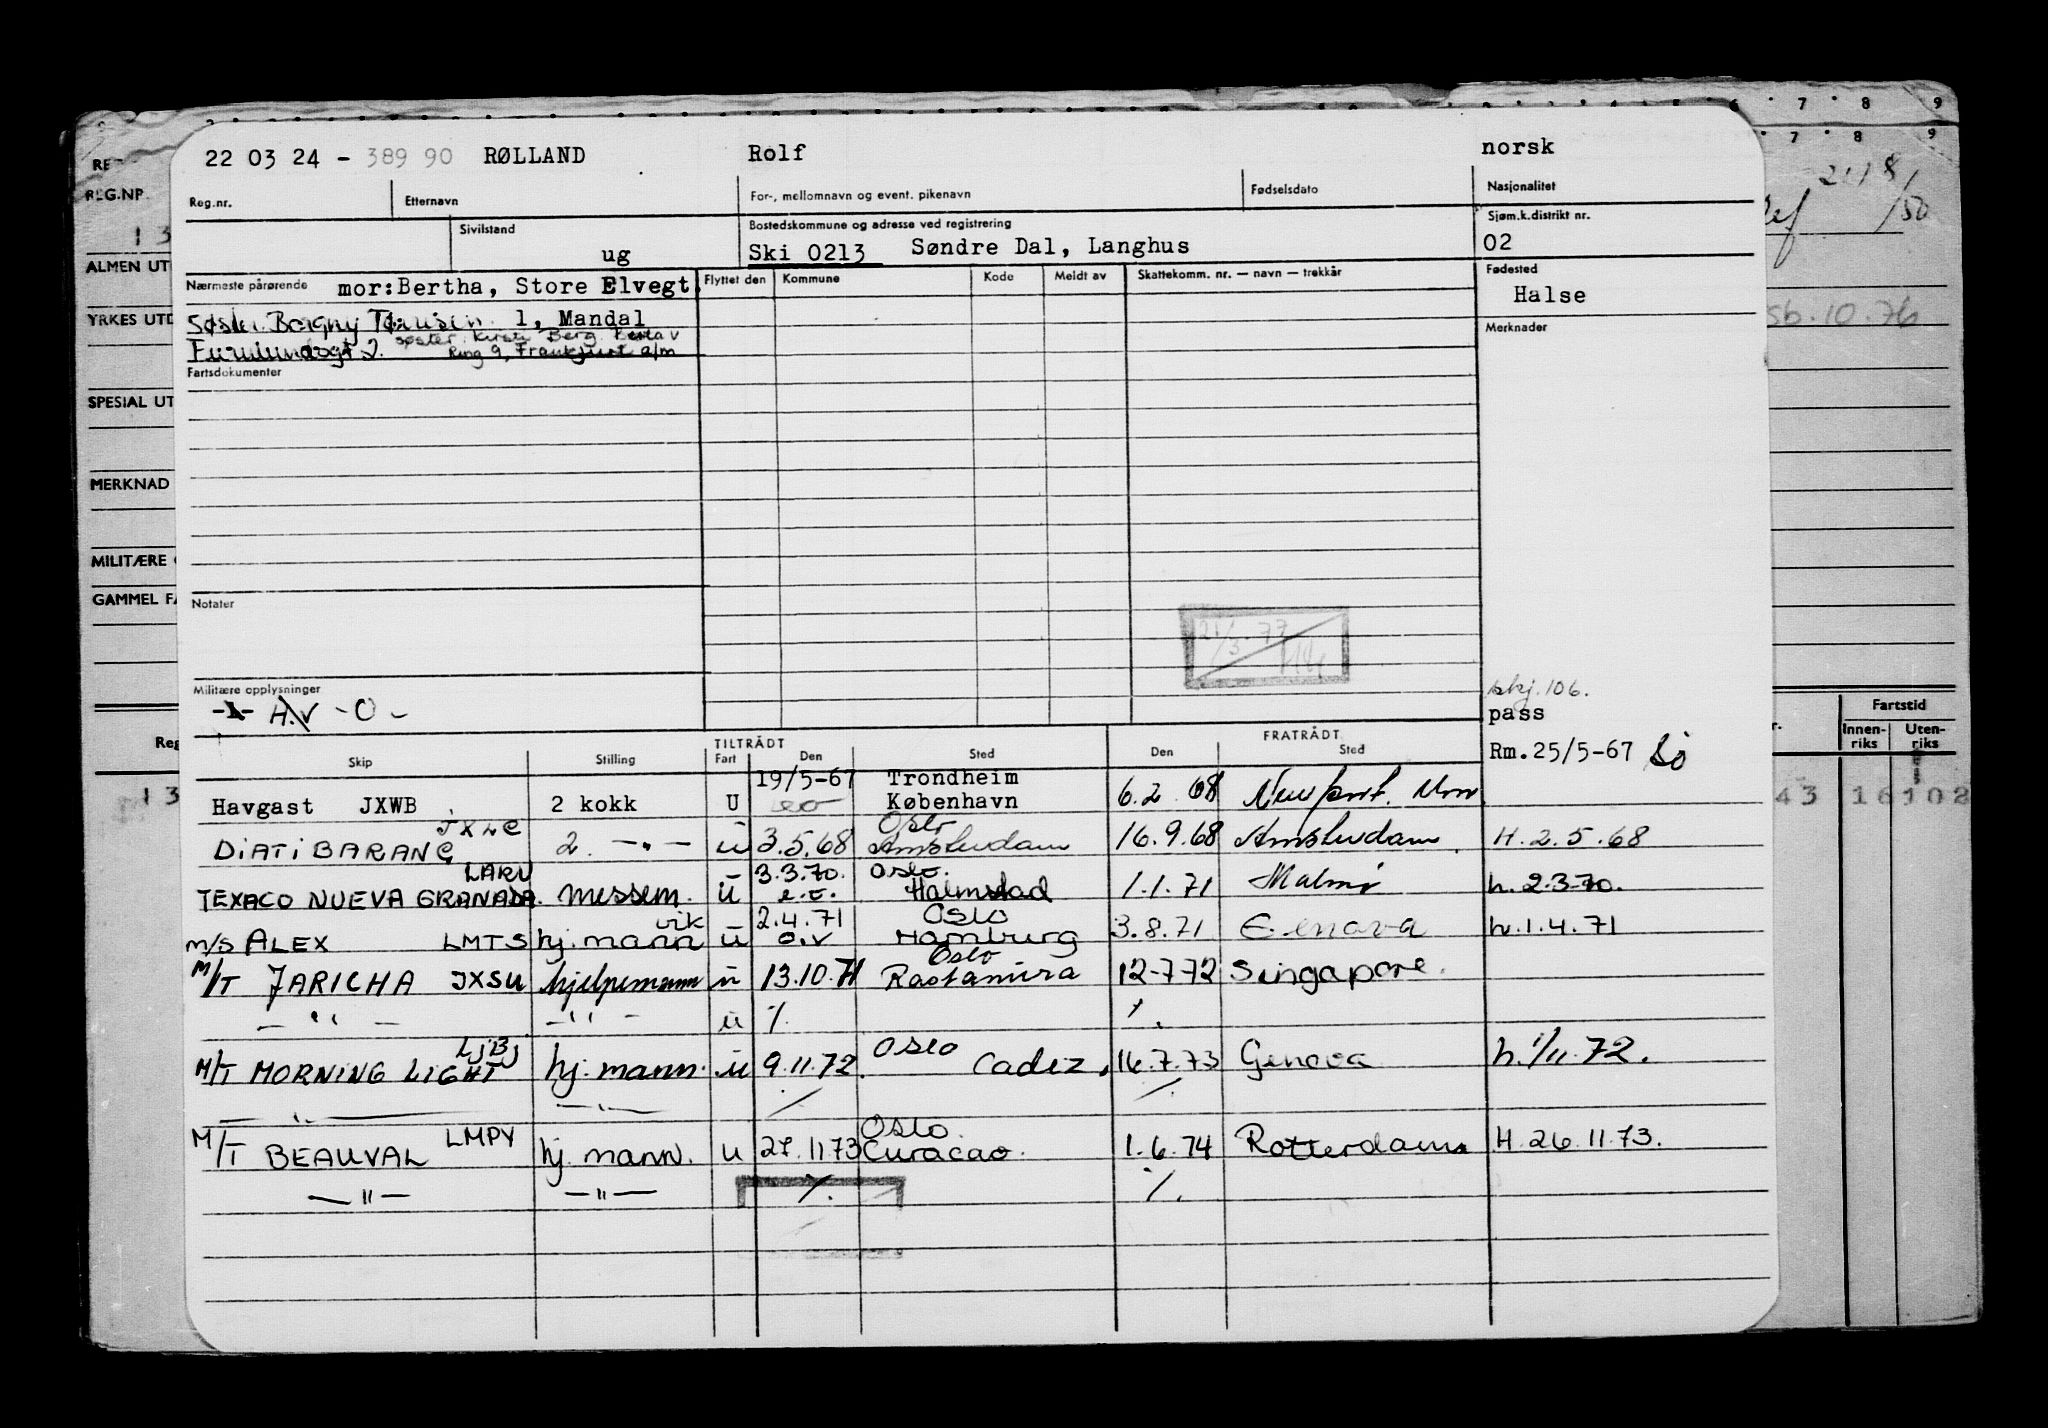 6 · 7 · 8 9
7 · 8 9
22 03 24 - 389 90 RØLLAND Rolf norsk
REG.NR.
Reg.nr. Etternavn For-, mellomnavn og event. pikenavn Fødselsdato Nasjonalitet
Sivilstand Bostedskommune og adresse ved registrering Sjøm.k.distrikt nr.
ug Ski 0213 Søndre Dal, Langhus 02
ALMEN UT
Nærmeste pårørende mor:Bertha, Store Elvegt. Flyttet den Kommune Kode Meldt av Skattekomm. nr. — navn — trekkår Fødested
Halse
YRKES UTD Søster Borgny 1, Mandal 10.76
Merknader
søster Kirsti Berg
Ring 9, Frankfurt a/m
Fartsdokumenter
SPESIAL UT
MERKNAD
MILITÆRE
GAMMEL FA
Notater
21/3.77
Militære opplysninger
-1- H.V -O-
skj.106.
pass
Rm.25/5-67
Fartstid
Innenriks Utenriks
TILTRÅDT FRATRÅDT
Skip Stilling Fart Den Sted Den Sted
Havgast JXWB 2 kokk U 19/5-67 Trondheim København 6.2.68 Newport. Mon
DIATIBARANG JXLC 2. —"— u 3.5.68 Oslo Amsterdam 16.9.68 Amsterdam. H.2.5.68
TEXACO NUEVA GRANADA LARV messem. u 3.3.70. e.o. Oslo. Halmstad 1.1.71 Malmö h. 2.3.70.
M/S ALEX LMTS hj.mann vik u 2.4.71 o.v Oslo Hamburg 3.8.71 Genova h.1.4.71
M/T JARICHA JXSU hjelpemann u 13.10.71 Oslo Rastanura 12-7-72 Singapore.
—"— —"— u ٪ ٪
M/T MORNING LIGHT LJBJ hj.mann. u 9.11.72. Oslo Cadiz. 16.7.73 Genova h.1/11.72.
—"— —"— ٪ ٪
M/T BEAUVAL LMPY hj.mann. u 27.11.73 Oslo. Curacao. 1.6.74 Rotterdam H.26.11.73.
—"— —"— ٪ ٪